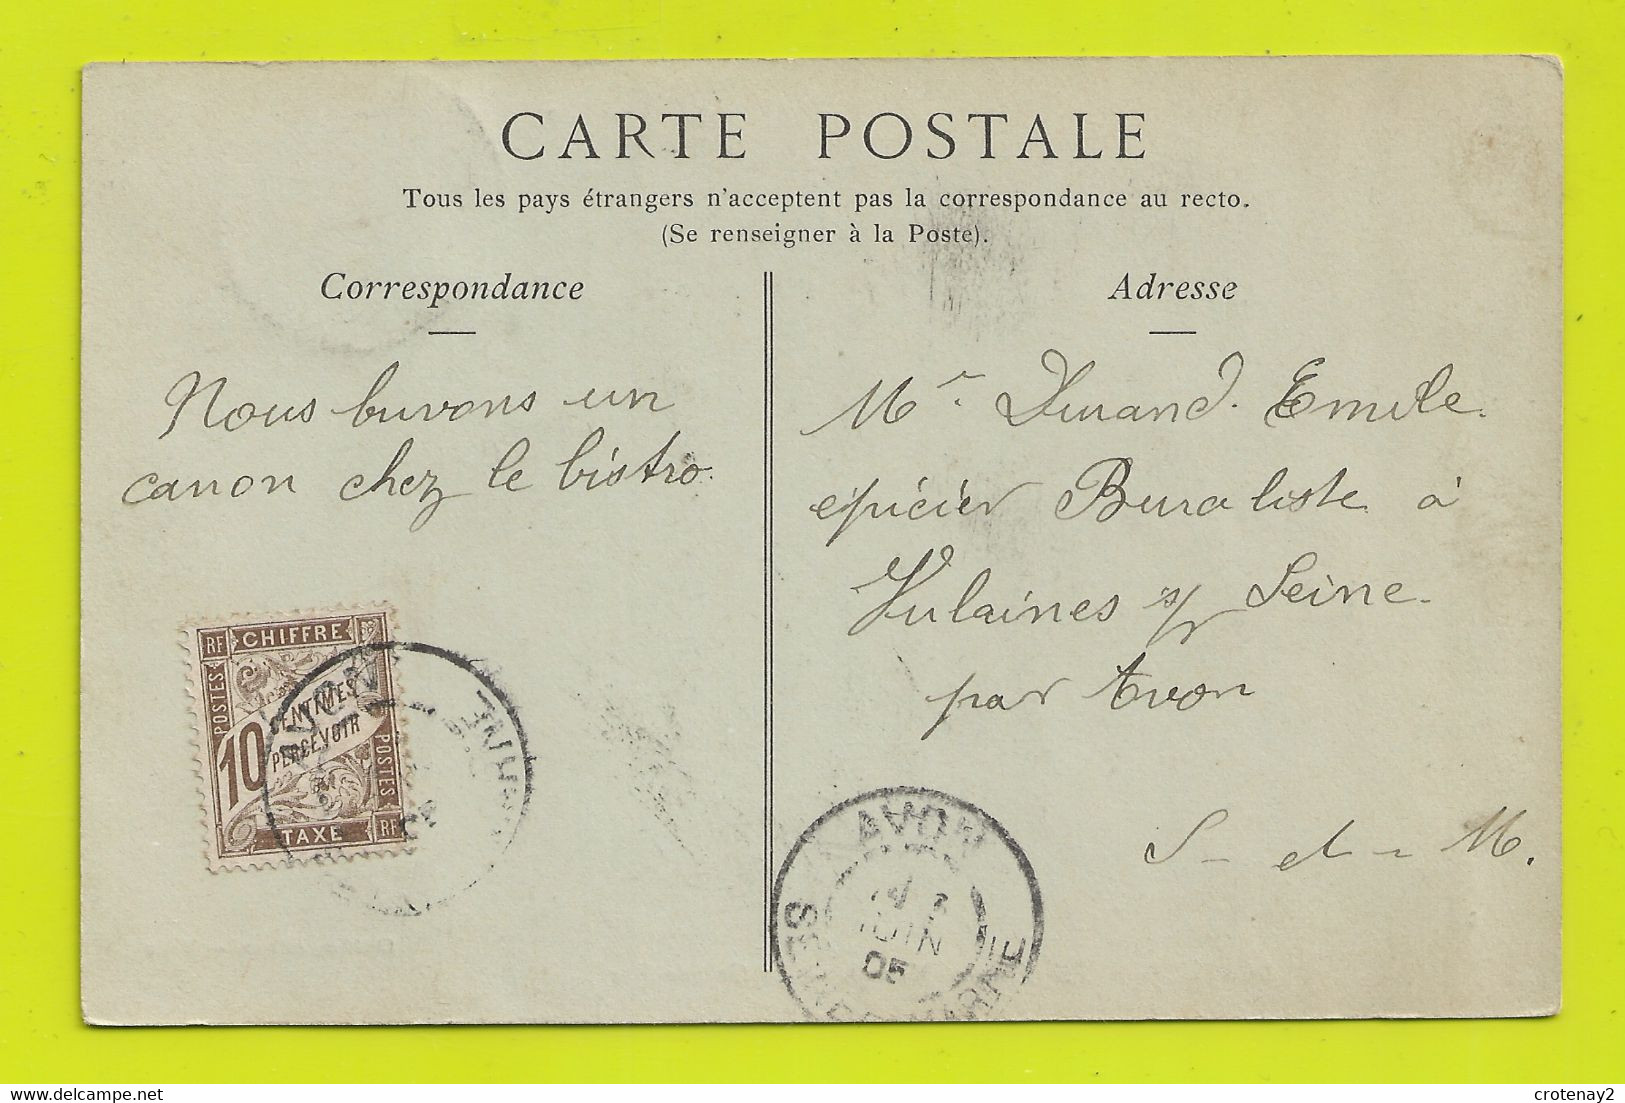 CARTE POSTALE
Tous les pays étrangers n'acceptent pas la correspondance au recto.
(Se renseigner à la Poste).
Correspondance
Adresse
Nous buvons un
canon chez le bistro.
Mr. Durand. Emile.
épicier Buraliste à
Vulaines s/ Seine.
par Avon
S-et-M.
RF CHIFFRE
POSTES
10 CENTIMES
PERCEVOIR
POSTES
TAXE RF
AVON
JUIN
05
SEINE-ET-MARNE
crotenay2